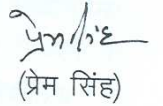 प्रेम सिंह
(प्रेम सिंह)